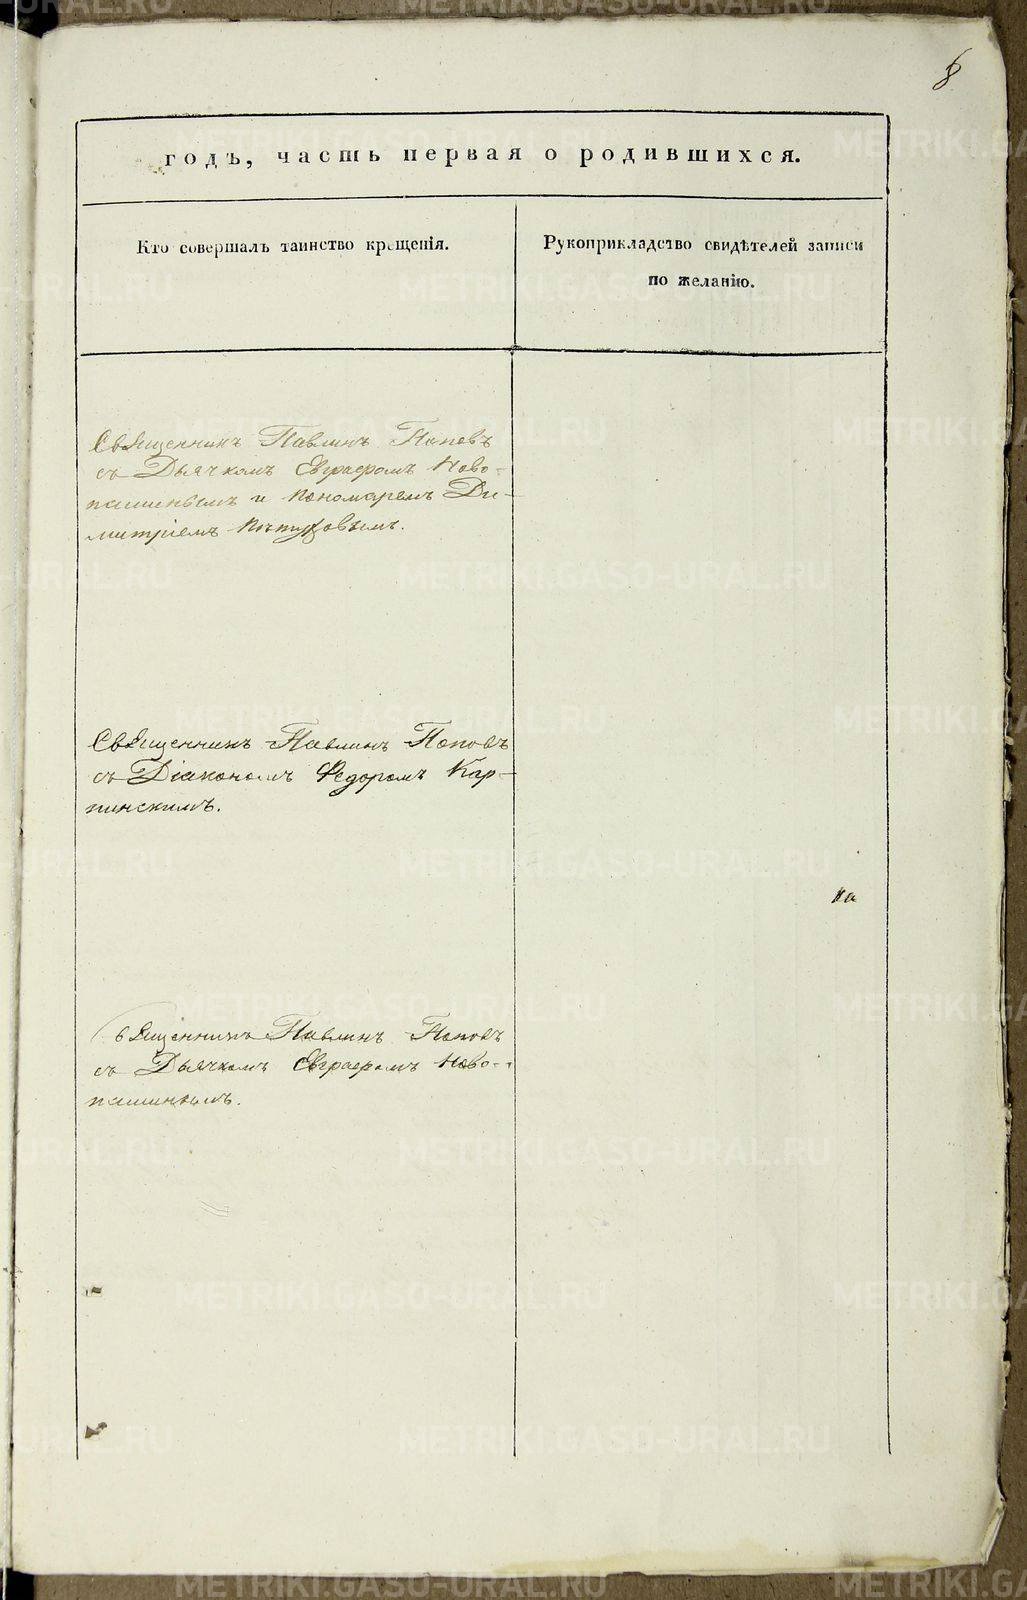 8
годъ, часть первая о родившихся.
Кто совершалъ таинство крещенія.
Рукоприкладство свидѣтелей записи
по желанію.
Священникъ Павлинъ Поповъ
съ Дьячкомъ Евграфомъ Ново-
пашинымъ и пономаремъ Ди-
митріемъ Пѣтуховымъ.
Священникъ Павлинъ Поповъ
съ Діакономъ Федоромъ Кар-
пинскимъ.
на
Священникъ Павлинъ Поповъ
съ Дьячкомъ Евграфомъ Ново-
пашинымъ.
METRIKI.GASO-URAL.RU